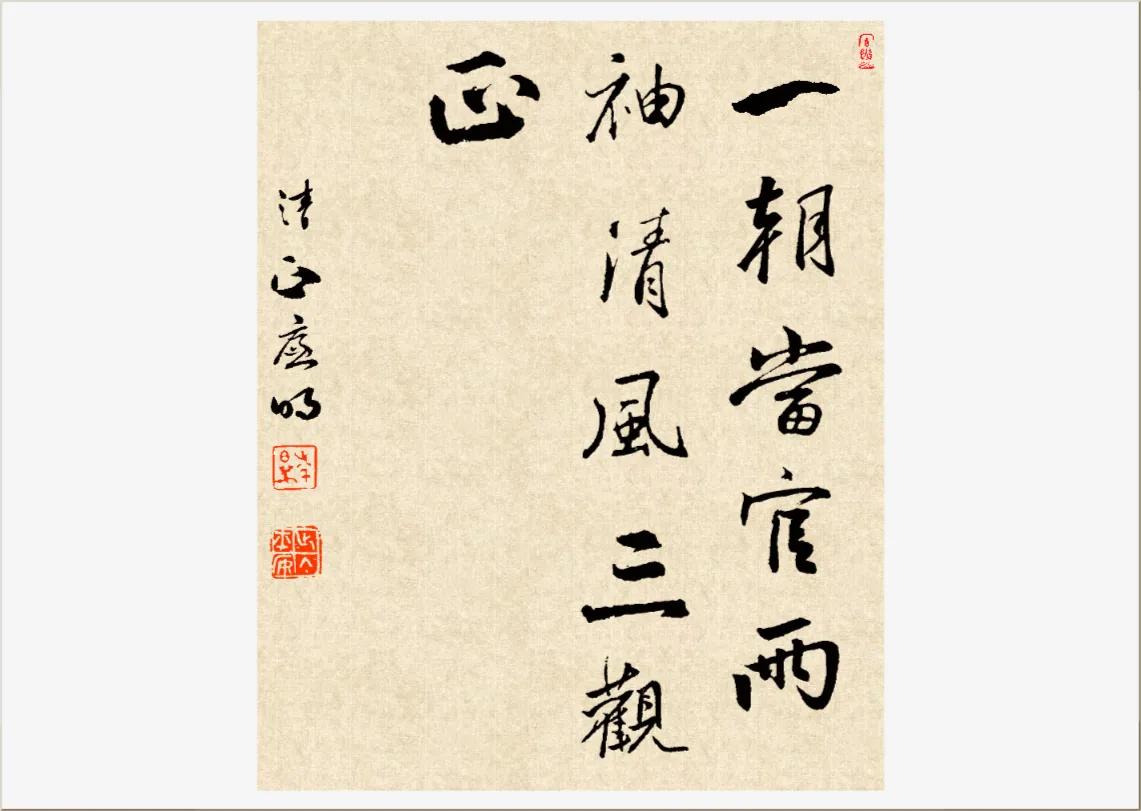 一朝當官兩
袖清風三觀
正
清正廉明